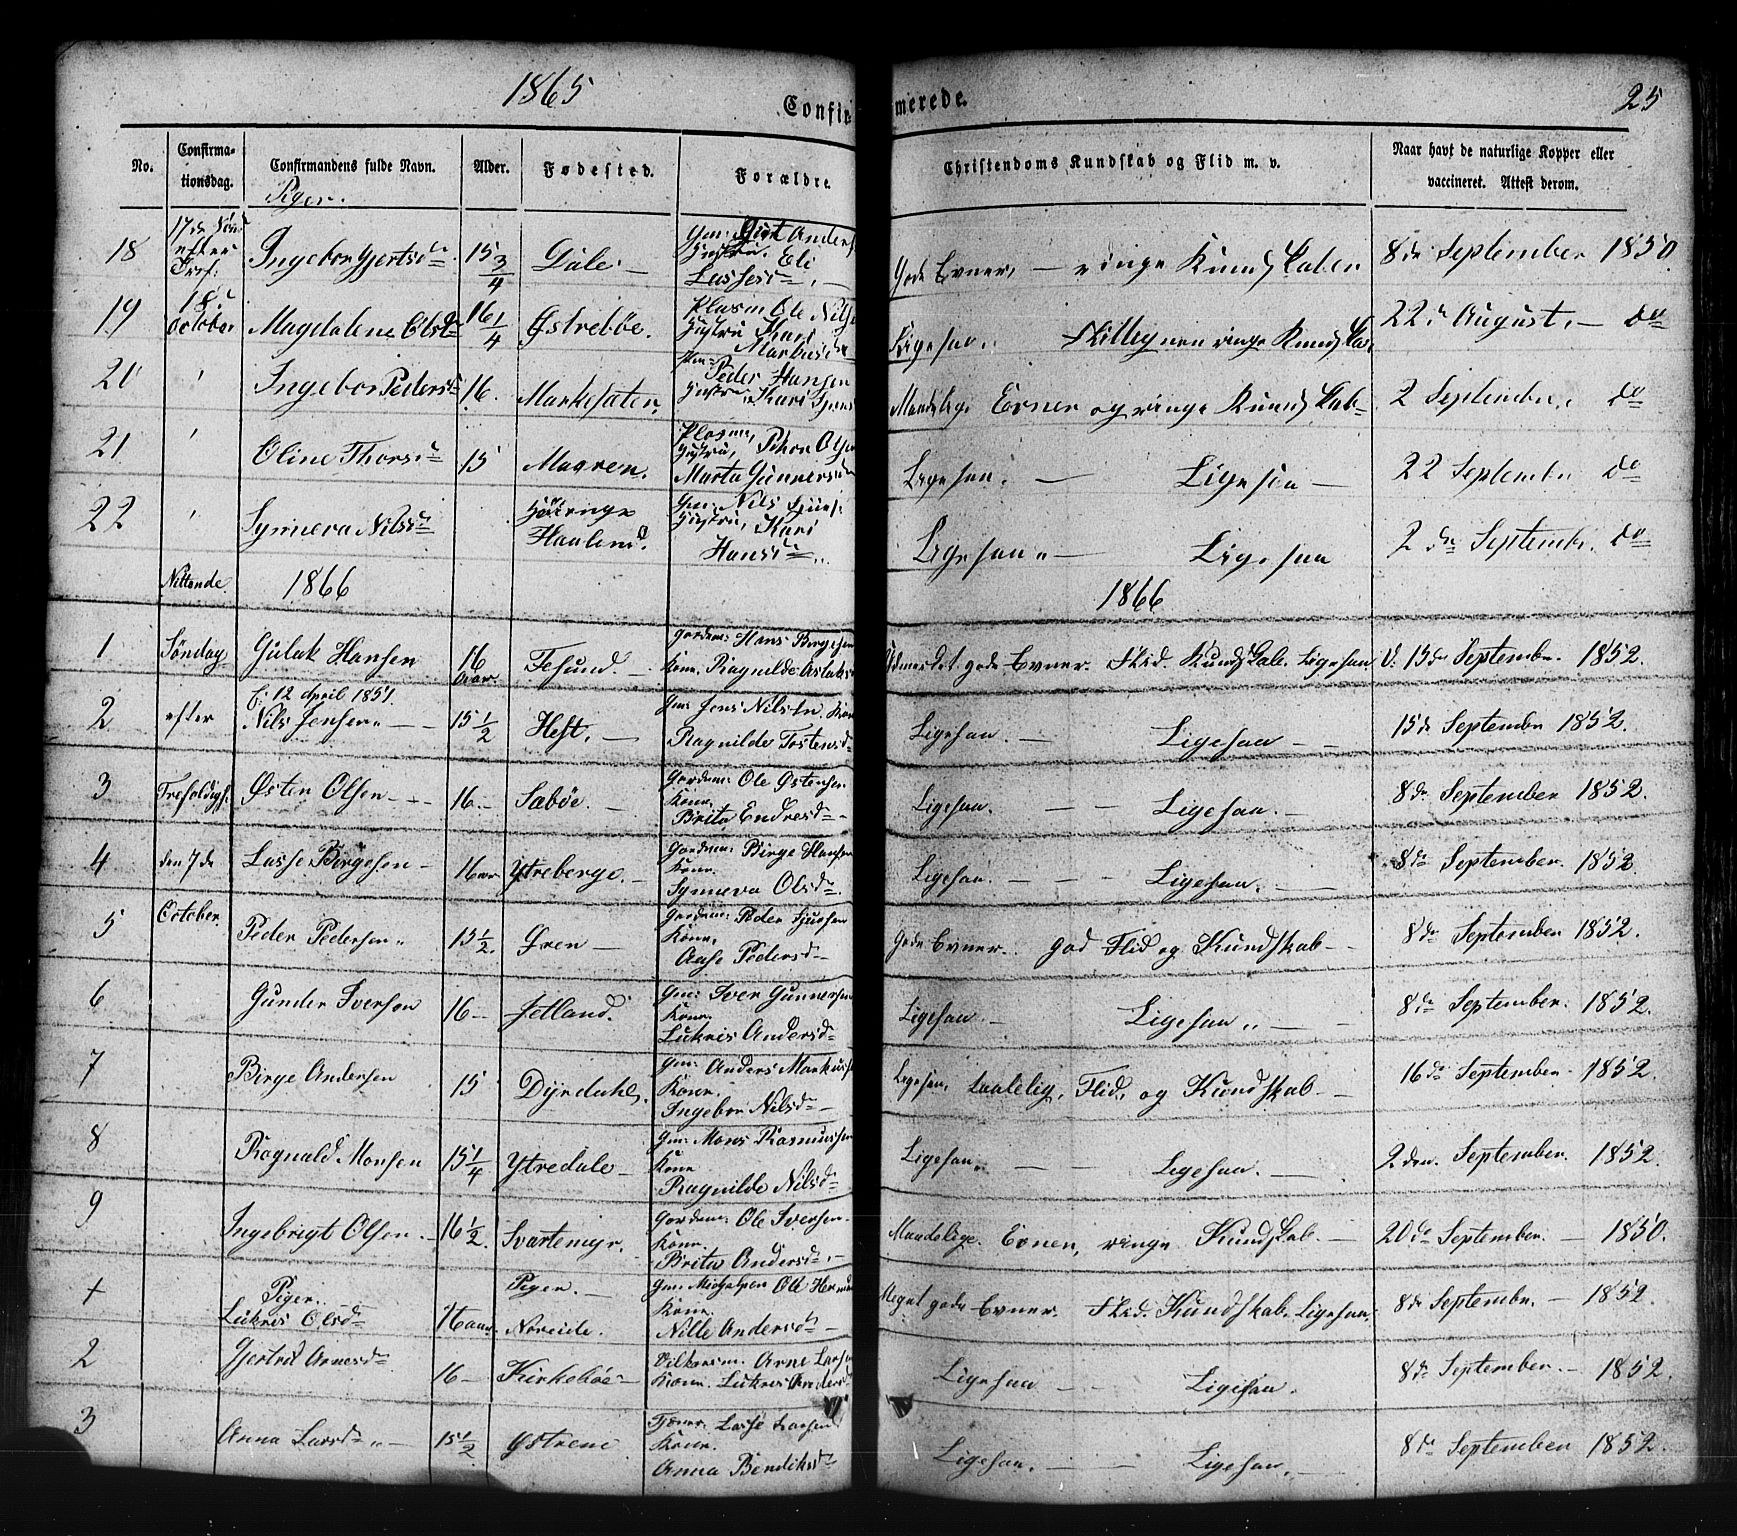 1865
Confir
merede.
25
No.
Confirma-
tionsdag.
Confirmandens fulde Navn.
Alder.
Fødested.
Forældre.
Christendoms Kundskab og Flid m. v.
Naar havt de naturlige Kopper eller
vaccineret. Attest derom.
Piger.
18 17de efter Tref: Ingebor Gjertsdr 15 3/4 Dale Gm: Gjert Anders Hustru, Eli Lassesdr Gode Evner, ringe Kundskaber 8de September 1850.
19 18. October Magdalene Olsdr 16 1/4 Østrebøe. Plasm Ole Nilse Hustru Kari Markusdr Ligesaa. ringe Kundska. 22de August, do
20 Ingebor Pedersdr 16. Peder Hansen Hustru Kari Maadelige Evner og ringe Kundskab 2 September, do
21 Oline Thorsdr 15 Magren. Plasm, Thor Olsen Hustru, Marta Gunnersdr Ligesaa. Ligesaa 22 September do
22 Synneva Nilsdr Haaland. Gm: Nils Hustru, Kari Hansdr Ligesaa Ligesaa 2 den September do
Nittende 1866 1866
1 Søndag Gulak Hansen 16 Aar. Fesund. Gordm: Hans Birgesen Kone. Ragnilde Aslaks Udmerket gode Evner. Flid. Kundskab. Ligesaa V. 15de September. 1852.
f. 12 April 1851.
2 efter Nils Jensen 15 1/2 Heft, Gm: Jens Nilsen. Kone Ragnilde Tostensdr Ligesaa. Ligesaa 15de September 1852.
3 Trefoldigh. Østen Olsen 16. Sæbøe. Gordm: Ole Østensen Kone. Brita Endresdr Ligesaa. Ligesaa. 8de September 1852.
4 den 7de Lasse Birgesen 16 aar Ytreberge. Gordm: Birge Hansen Kone. Synneva Olsdr. Ligesaa. Ligesaa. 8de September. 1852.
5 October. Peder Pedersen 15 1/2. Øren Gordm: Peder Sjursen Kone, Aase Pedersdr Gode Evner. god Flid og Kundskab 8de September 1852.
6 Gunder Iversen 16 Jetland. Gm: Iver Gunnersen Kone. Lukris Andersdr Ligesaa. Ligesaa 8de September. 1852.
7 Birge Andersen 15 Dyrdahl. Gm: Anders Markuss Kone. Ingebor Nilsdr Ligesaa, taalelig, Flid, og Kundskab. 16de September. 1852.
8 Ragnald Monsen 15 1/4 Ytredale Gm: Mons Rasmussen Kone Ragnilde Nilsdr Ligesaa. Ligesaa. 2den. September. 1852.
9 Ingebrigt Olsen. 16 1/2. Svartemyr. Gordm: Ole Iversen. Kone. Brita Andersdr Maadelige. Evner, ringe Kundskab. 20de September. 1850.
Piger. Piger.
1 Lukris Olsdr 16 aar Noreide. Gm: Ole Kone. Nille Andersdr Meget gode Evner. Flid. Kundskab. Ligesaa. 8de September. 1852.
2 Gjertrud Arnesdr 16 Kirkebøe Arne Larsen Kone. Lukris Andersd Ligesaa Ligesaa. 8de September. 1852.
3 Anna Larsdr 15 1/2 Østrene Lasse Larsen Kone. Anna Bendiksdr Ligesaa. Ligesaa. 8de September 1852.